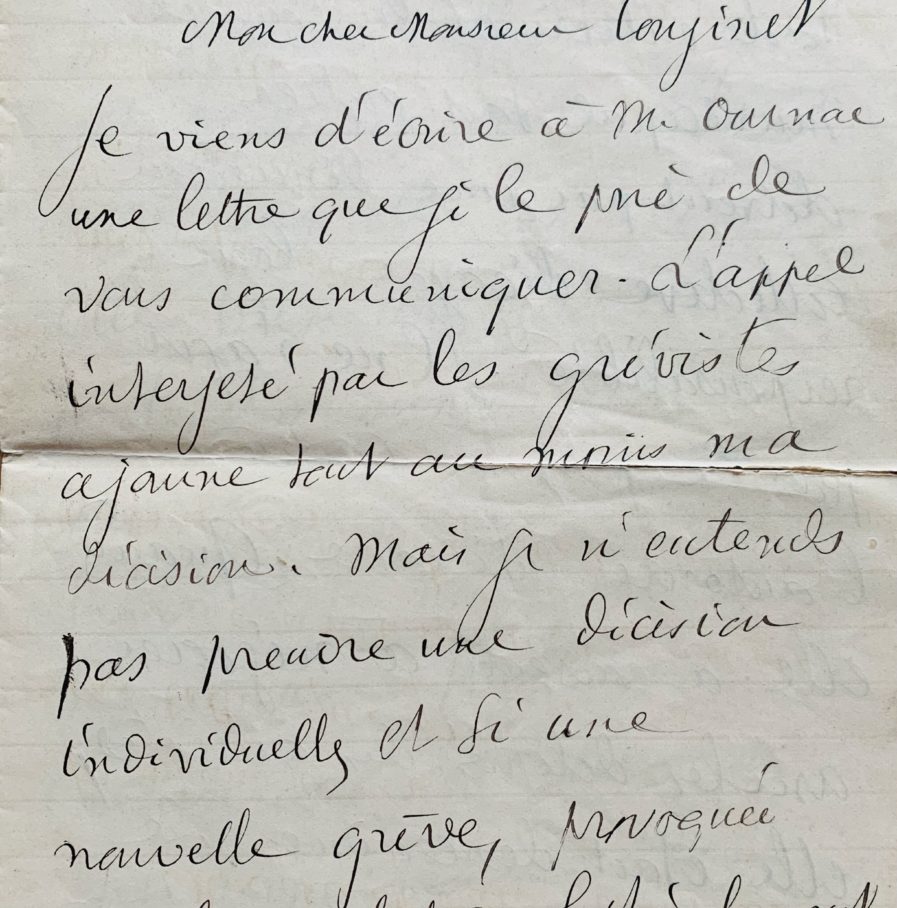 Mon cher Monsieur
Je viens d'écrire à M. Ournac
une lettre que je le prie de
vous communiquer. L'appel
interjeté par les grévistes
ajourne tout au moins ma
décision. Mais je n'entends
pas prendre une décision
individuelle, et si une
nouvelle grève, provoquée